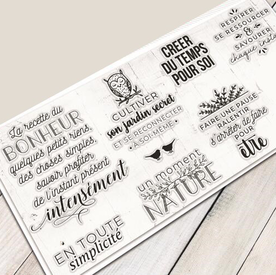 La recette du
BONHEUR
quelques petits riens,
des choses simples,
savoir profiter
de l'instant présent
intensément
EN TOUTE
simplicité
CULTIVER
son jardin secret
ET SE RECONNECTER
À SOI-MÊME
un moment
NATURE
CRÉER
DU TEMPS
POUR SOI
RESPIRER
SE RESSOURCER
&
SAVOURER
chaque
FAIRE UNE PAUSE
RALENTIR
s'arrêter de faire
POUR
être